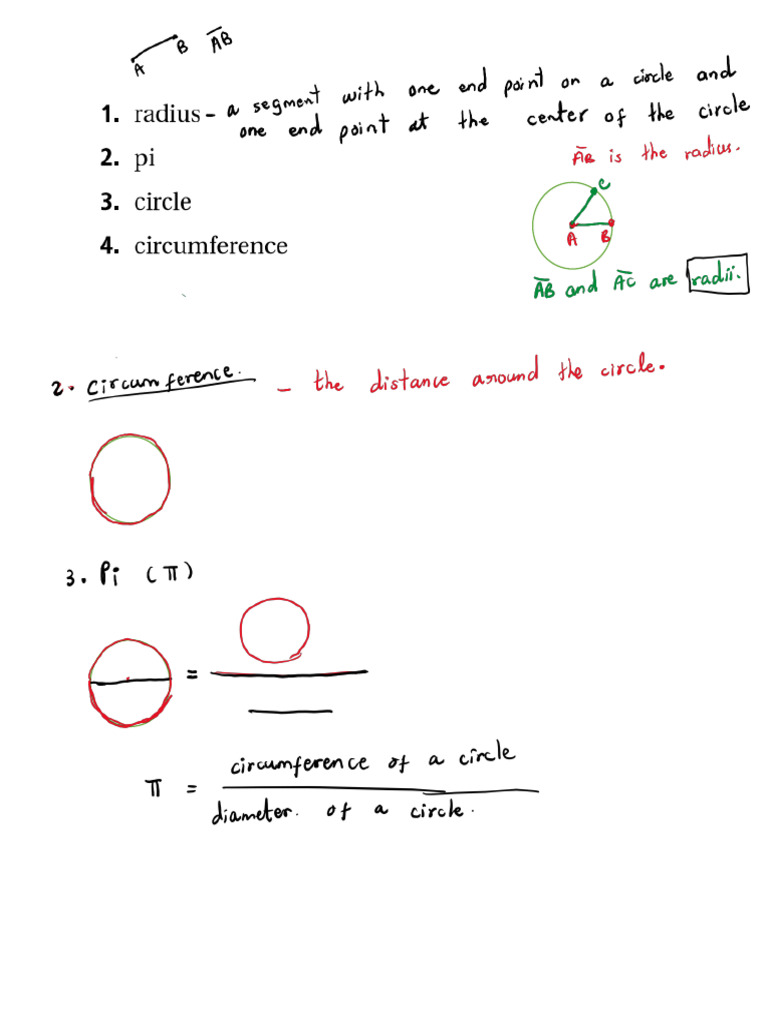 A B A̅B̅
1. radius - a segment with one end point on a circle and
one end point at the center of the circle
2. pi
A̅B̅ is the radius.
3. circle
C
A B
4. circumference
A̅B̅ and A̅C̅ are radii.
2. circumference. - the distance around the circle.
3. Pi (π)
=
π = circumference of a circle
diameter. of a circle.